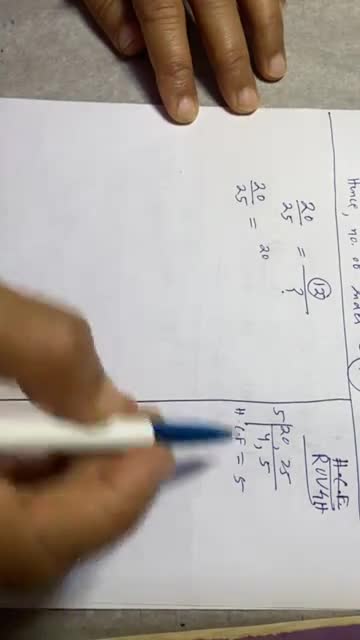 Hence, no. of
20/25 = 12/?
20/25 = 20
H.C.F
Rough
5 | 20, 25
4, 5
= 5